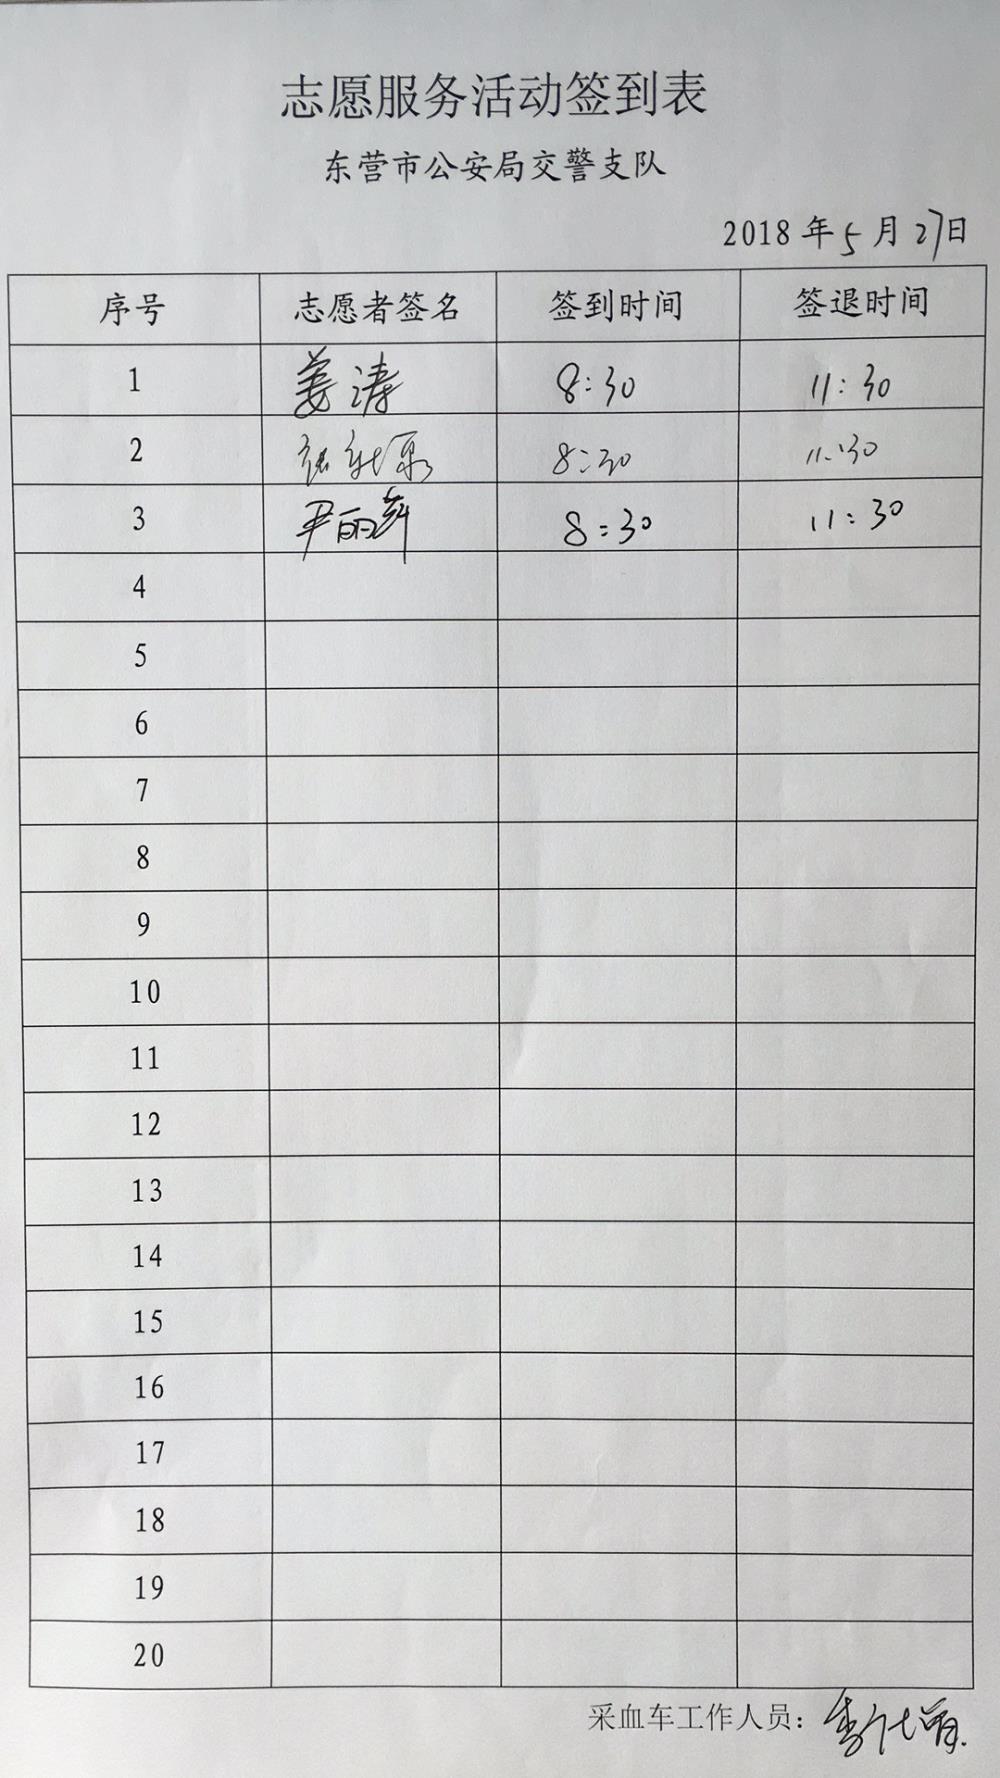 志愿服务活动签到表
东营市公安局交警支队
2018年5月27日
序号 志愿者签名 签到时间 签退时间
1 姜涛 8:30 11:30
2 张 8:30 11:30
3 尹丽萍 8:30 11:30
4
5
6
7
8
9
10
11
12
13
14
15
16
17
18
19
20
采血车工作人员：李